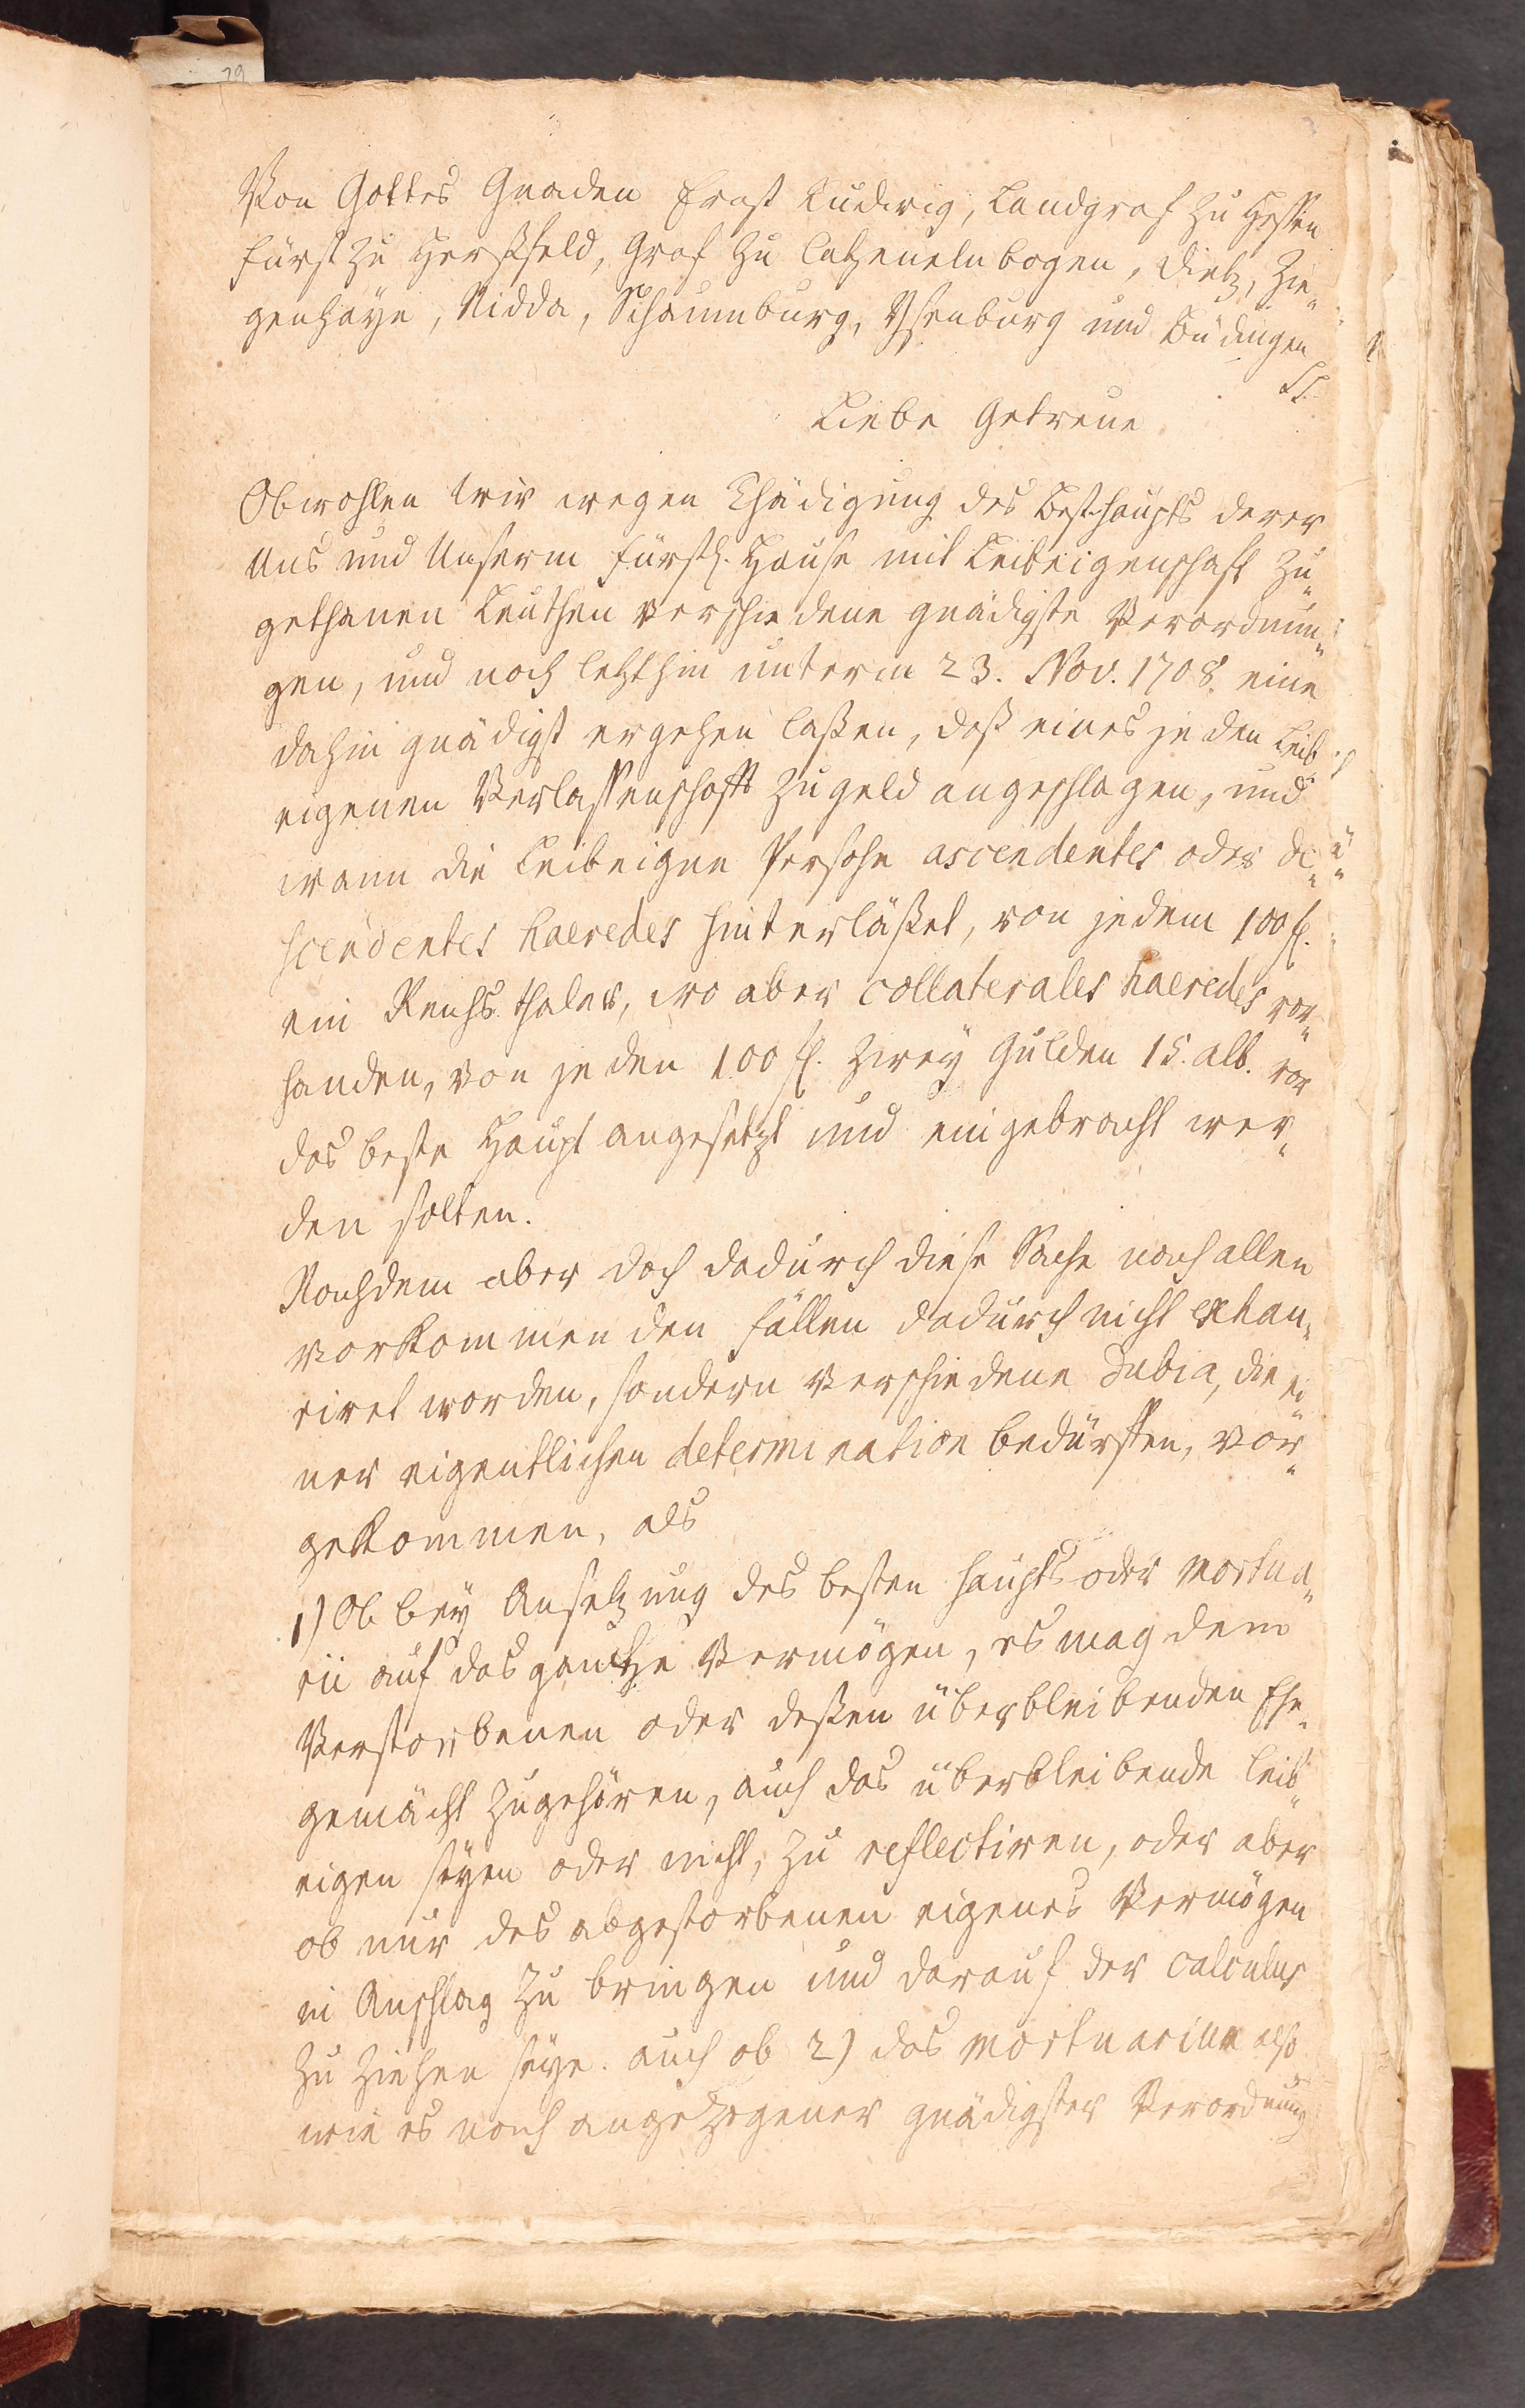 29
Von Gottes Gnaden Ernst Ludwig, Landgraf zu Heßen
Fürst zu Herßfeld, Graf zu Catzenelnbogen, Dietz, Zie„
genhayn, Nidda, Schaumburg, Ysenburg und Büdingen
Liebe Getreue
Obwohlen wir wegen Thädigung des Besthaupts derer
Uns und Unserm Fürstl. Hause mit Leibeigenschaft zu„
gethanen Leuthen verschiedene gnädigste Verordnun„
gen, und noch letzthin unterm 23. Nov. 1708. eine
dahin gnädigst ergehen laßen, daß eines jeden Leib„
eigenen Verlassenschafft zu geld angeschlagen, und
wann die Leibeigne Persohn ascendentes oder de„
scendentes haeredes hinterläßet, von jedem 100 fl.
ein Reichsthaler, wo aber collaterales haeredes vor„
handen, von jeden 100 fl. zwey Gulden 15. alb. vor
das beste Haupt angesetzt und eingebracht wer„
den solten.
Nachdem aber doch dadurch diese Sache nach allen
vorkommenden fällen dadurch nicht exhau„
riret worden, sondern verschiedene Dubia, die ei„
ner eigentlichen determination bedürffen, vor„
gekommen, als
1) Ob bey Ansetzung des besten haupts oder mortua„
rii auf das gantze Vermögen, es mag dem
Verstorbenen oder deßen überbleibenden Ehe„
gemächt zugehören, auch das überbleibende leib„
eigen seyen oder nicht, zu reflectiren, oder aber
ob nur des abgestorbenen eigenes Vermögen
in Anschlag zu bringen und darauf der calculus
zu ziehen seye. auch ob 2) das mortuarium also
wie es nach angezogener gnädigster Verordnung